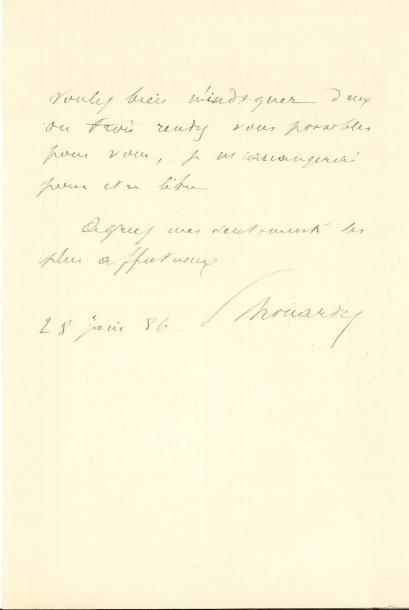 voulez bien m'indiquer deux
ou trois rendez vous possibles
pour vous, je m'arrangerai
pour être libre
Agréez mes sentiments les
plus affectueux
28 juin 86